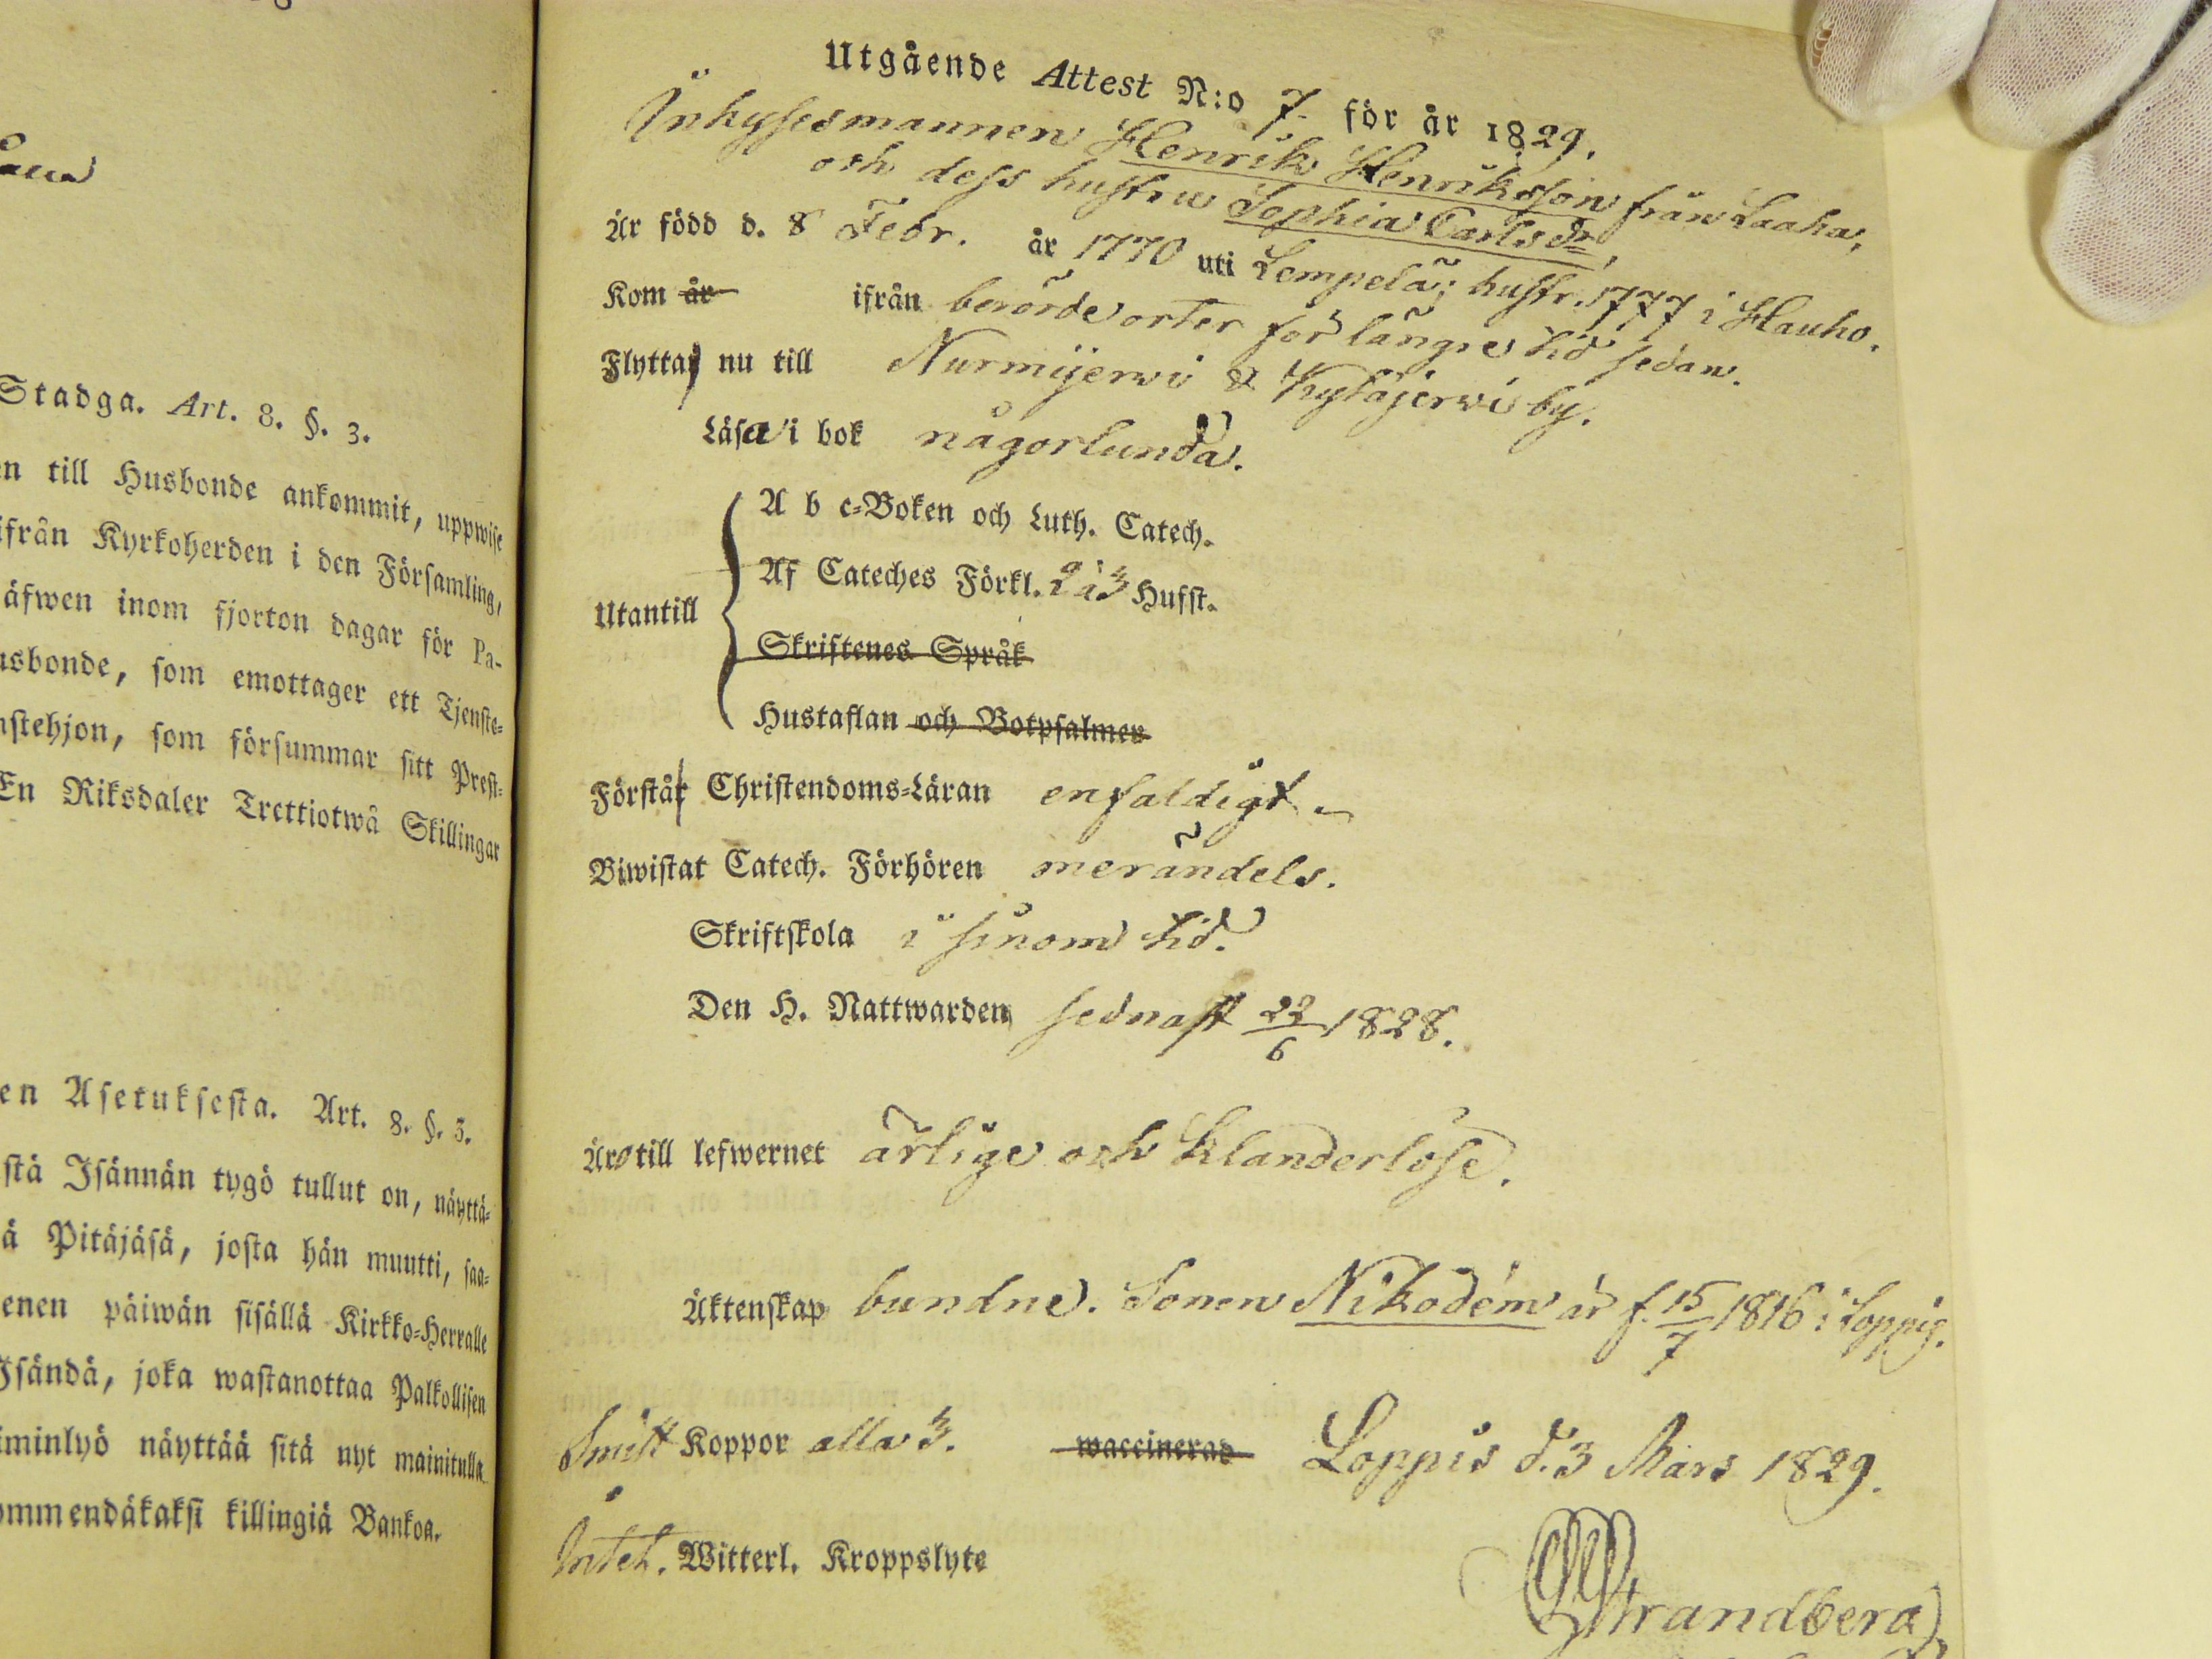 Lann
Stadga. Art. 8. §. 3.
en till Husbonde ankommit, uppwise
ifrån Kyrkoherden i den Församling,
äfwen inom fjorton dagar för Pa-
usbonde, som emottager ett Tjenste-
nstehjon, som försummar sitt Prest-
En Riksdaler Trettiotwå Skillingar
en Asetuksesta. Art. 8. §. 3.
stä Isännän tygö tullut on, näyttä-
ä Pitäjäsä, josta hän muutti, saa-
enen päiwän sisällä Kirkko-Herralle
Isändä, joka wastanottaa Palkollisen
iminlyö näyttää sitä nyt mainitulla
ommendäkaksi killingiä Bankoa.
Utgående Attest N:o 7 för år 1829.
Inhysesmannen Henrik Henriksson från Laaka,
och dess hustru Sophia Carlsdr,
Är född d. 8 Febr. år 1770 uti Lempelä; hustr. 1777 i Hauho.
Kom år ifrån berörde orter för längre tid sedan.
Flytta nu till Nurmijerwi & Kytäjerwi by.
Läsa i bok någorlunda.
Utantill
A b c-Boken och Luth. Catech.
Af Cateches Förkl. 2 à 3 Hufst.
Skriftenes Språk
Hustaflan och Botpsalmer
Förstå Christendoms-Läran enfaldigt
Biwistat Catech. Förhören merändels.
Skriftskola i sinom tid.
Den H. Nattwarden sednast 22/6 1828.
Äro till lefwernet ärlige och klanderlöse.
Äktenskap bundne. Sonen Nikodém är f. 15/7 1816 i Loppis.
Smitt Koppor alla 3. waccinerad Loppis d. 3 Mars 1829.
Intet. Witterl. Kroppslyte
Strandberg